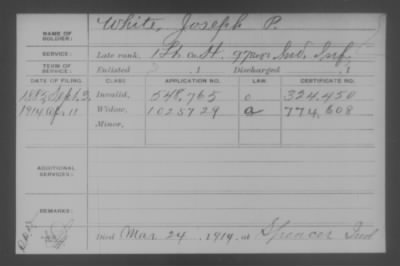 NAME OF SOLDIER: White, Joseph P.
SERVICE: Late rank, Co. H. 97 Regt Ind. Inf.
TERM OF SERVICE: Enlisted , 1 Discharged , 1
DATE OF FILING. CLASS. APPLICATION NO. LAW. CERTIFICATE NO.
1885, Sept. 2. Invalid, 548,765 324,450
1914 Ap. 11 Widow, 1025729 a 774,608
Minor,
ADDITIONAL SERVICES:
REMARKS:
Died Mar 24, 1914, at Spencer Ind